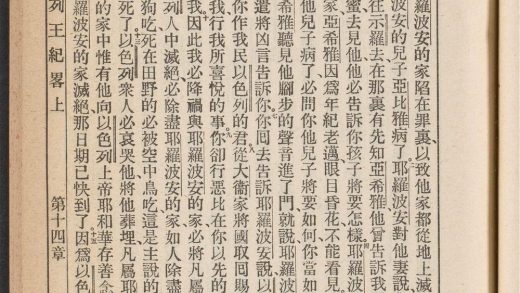 羅波安的家陷在罪裏、以致他家都從地上滅
波安的兒子亞比雅病了。耶羅波安對他妻說
往示羅去、在那裏有先知亞希雅、他曾告訴我
蜜去見他、他必告訴你孩子將要怎樣。耶羅波
家、亞希雅因爲年紀老邁、眼目昏花、不能看見
他兒子病了、必問你他兒子將要如何、你當如
希雅聽見他腳步的聲音、進了門、就說、耶羅波
遣將凶言告訴你。你囘去告訴耶羅波安說、以
你作我民以色列的君、從大衞家將國取囘賜
我、行我所喜悅的事。你卻行惡、比在你以先的
我。因此我必降禍與耶羅波安的家、必將凡屬
列人中滅絕、必除盡耶羅波安的家、如人除盡
狗吃、死在田野的必被空中鳥吃、這是主說的
死了。以色列衆人必哀哭他、將他葬埋、凡屬耶
的家中、惟有他向以色列上帝耶和華存善念
羅波安的家滅絕、那日期已快到了。因爲以色
列王紀畧上 第十四章